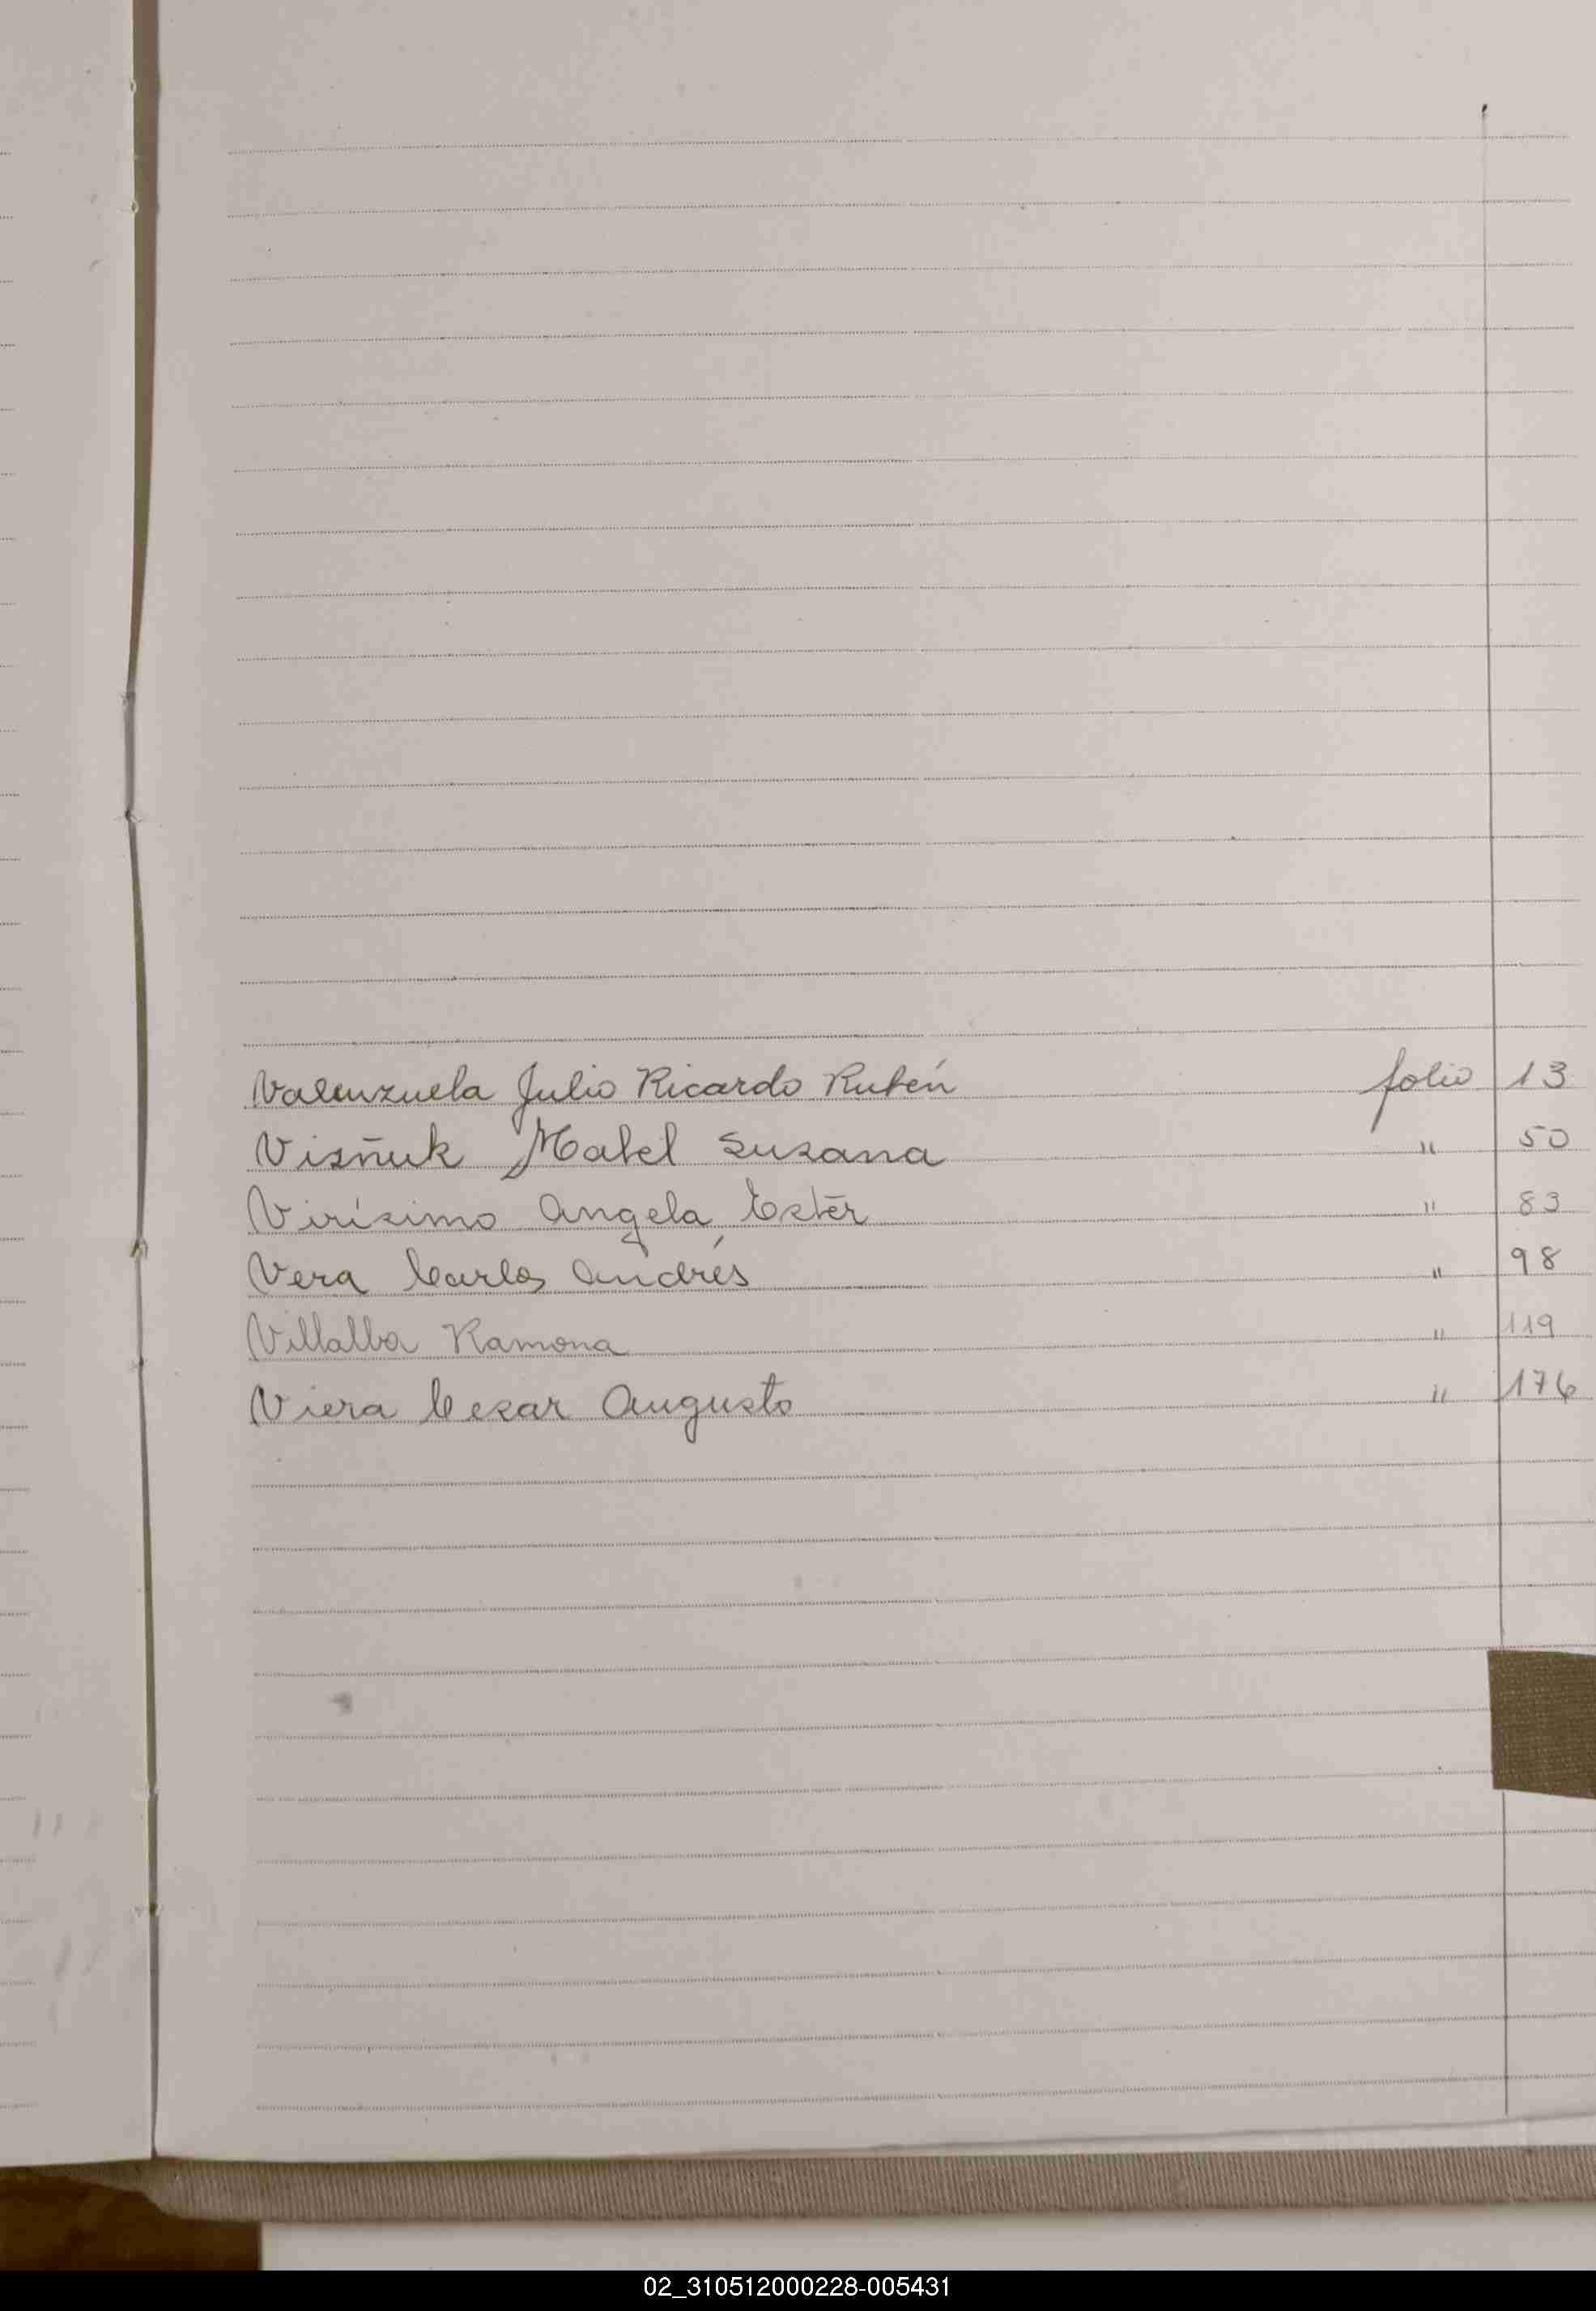 Valenzuela Julio Ricardo Rubén folio 13
Visñuk Mabel Susana " 50
Virísimo Angela Ester " 83
Vera Carlos Andrés " 98
Villalba Ramona " 119
Viera Cesar Augusto " 176
02_310512000228-005431